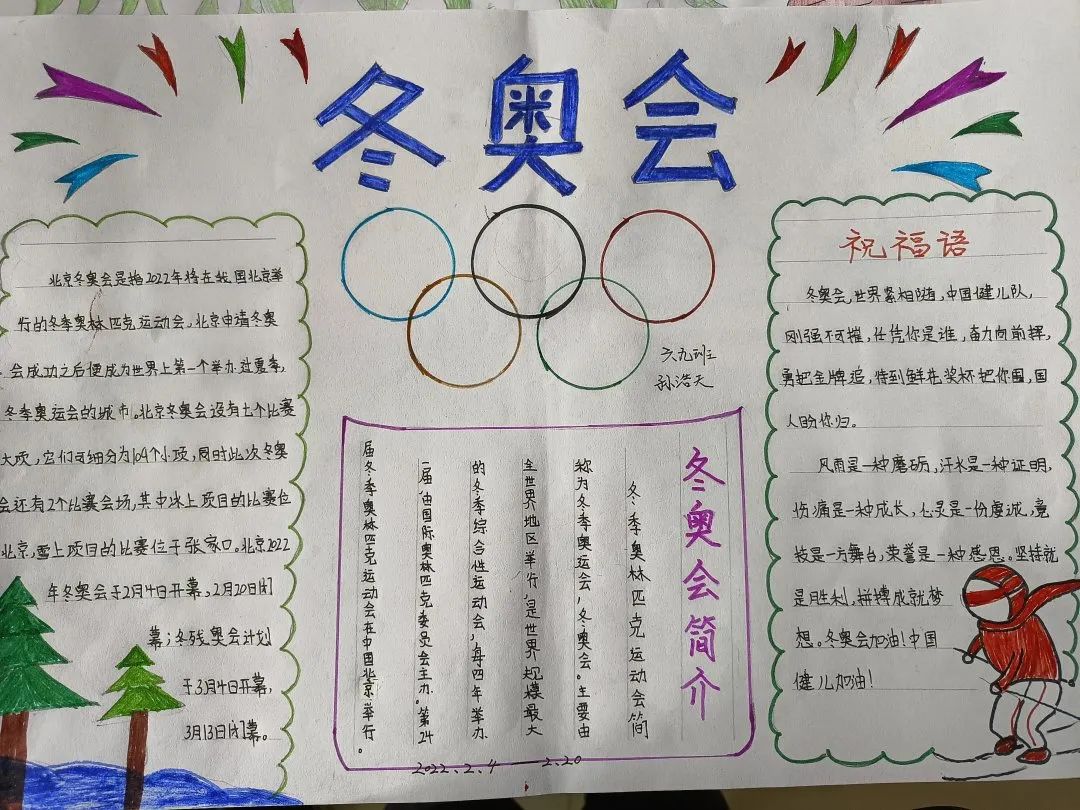 冬奥会
北京冬奥会是指2022年将在我国北京举
行的冬季奥林匹克运动会,北京申请冬奥
会成功之后便成为世界上第一个举办过夏季,
冬季奥运会的城市。北京冬奥会设有七个比赛
大项,它们可细分为109个小项,同时此次冬奥
会还有2个比赛会场,其中冰上项目的比赛位
北京,雪上项目的比赛位于张家口。北京2022
年冬奥会于2月4日开幕,2月20日闭
幕;冬残奥会计划
于3月4日开幕,
3月13日闭幕。
六九班
孙浩天
冬奥会简介
冬季奥林匹克运动会简
称为冬季奥运会,冬奥会。主要由
全世界地区举行,是世界规模最大
的冬季综合性运动会,每四年举办
一届,由国际奥林匹克委员会主办。第24
届冬季奥林匹克运动会在中国北京举行。
2022.2.4——2.20
祝福语
冬奥会,世界紧相随,中国健儿队,
刚强不可摧,任凭你是谁,奋力向前挥,
勇把金牌追,待到鲜花奖杯把你围,国
人盼你归。
风雨是一种磨砺,汗水是一种证明,
伤痛是一种成长,心灵是一份虔诚,竞
技是一方舞台,荣誉是一种感恩。坚持就
是胜利,拼搏成就梦
想。冬奥会加油!中国
健儿加油!